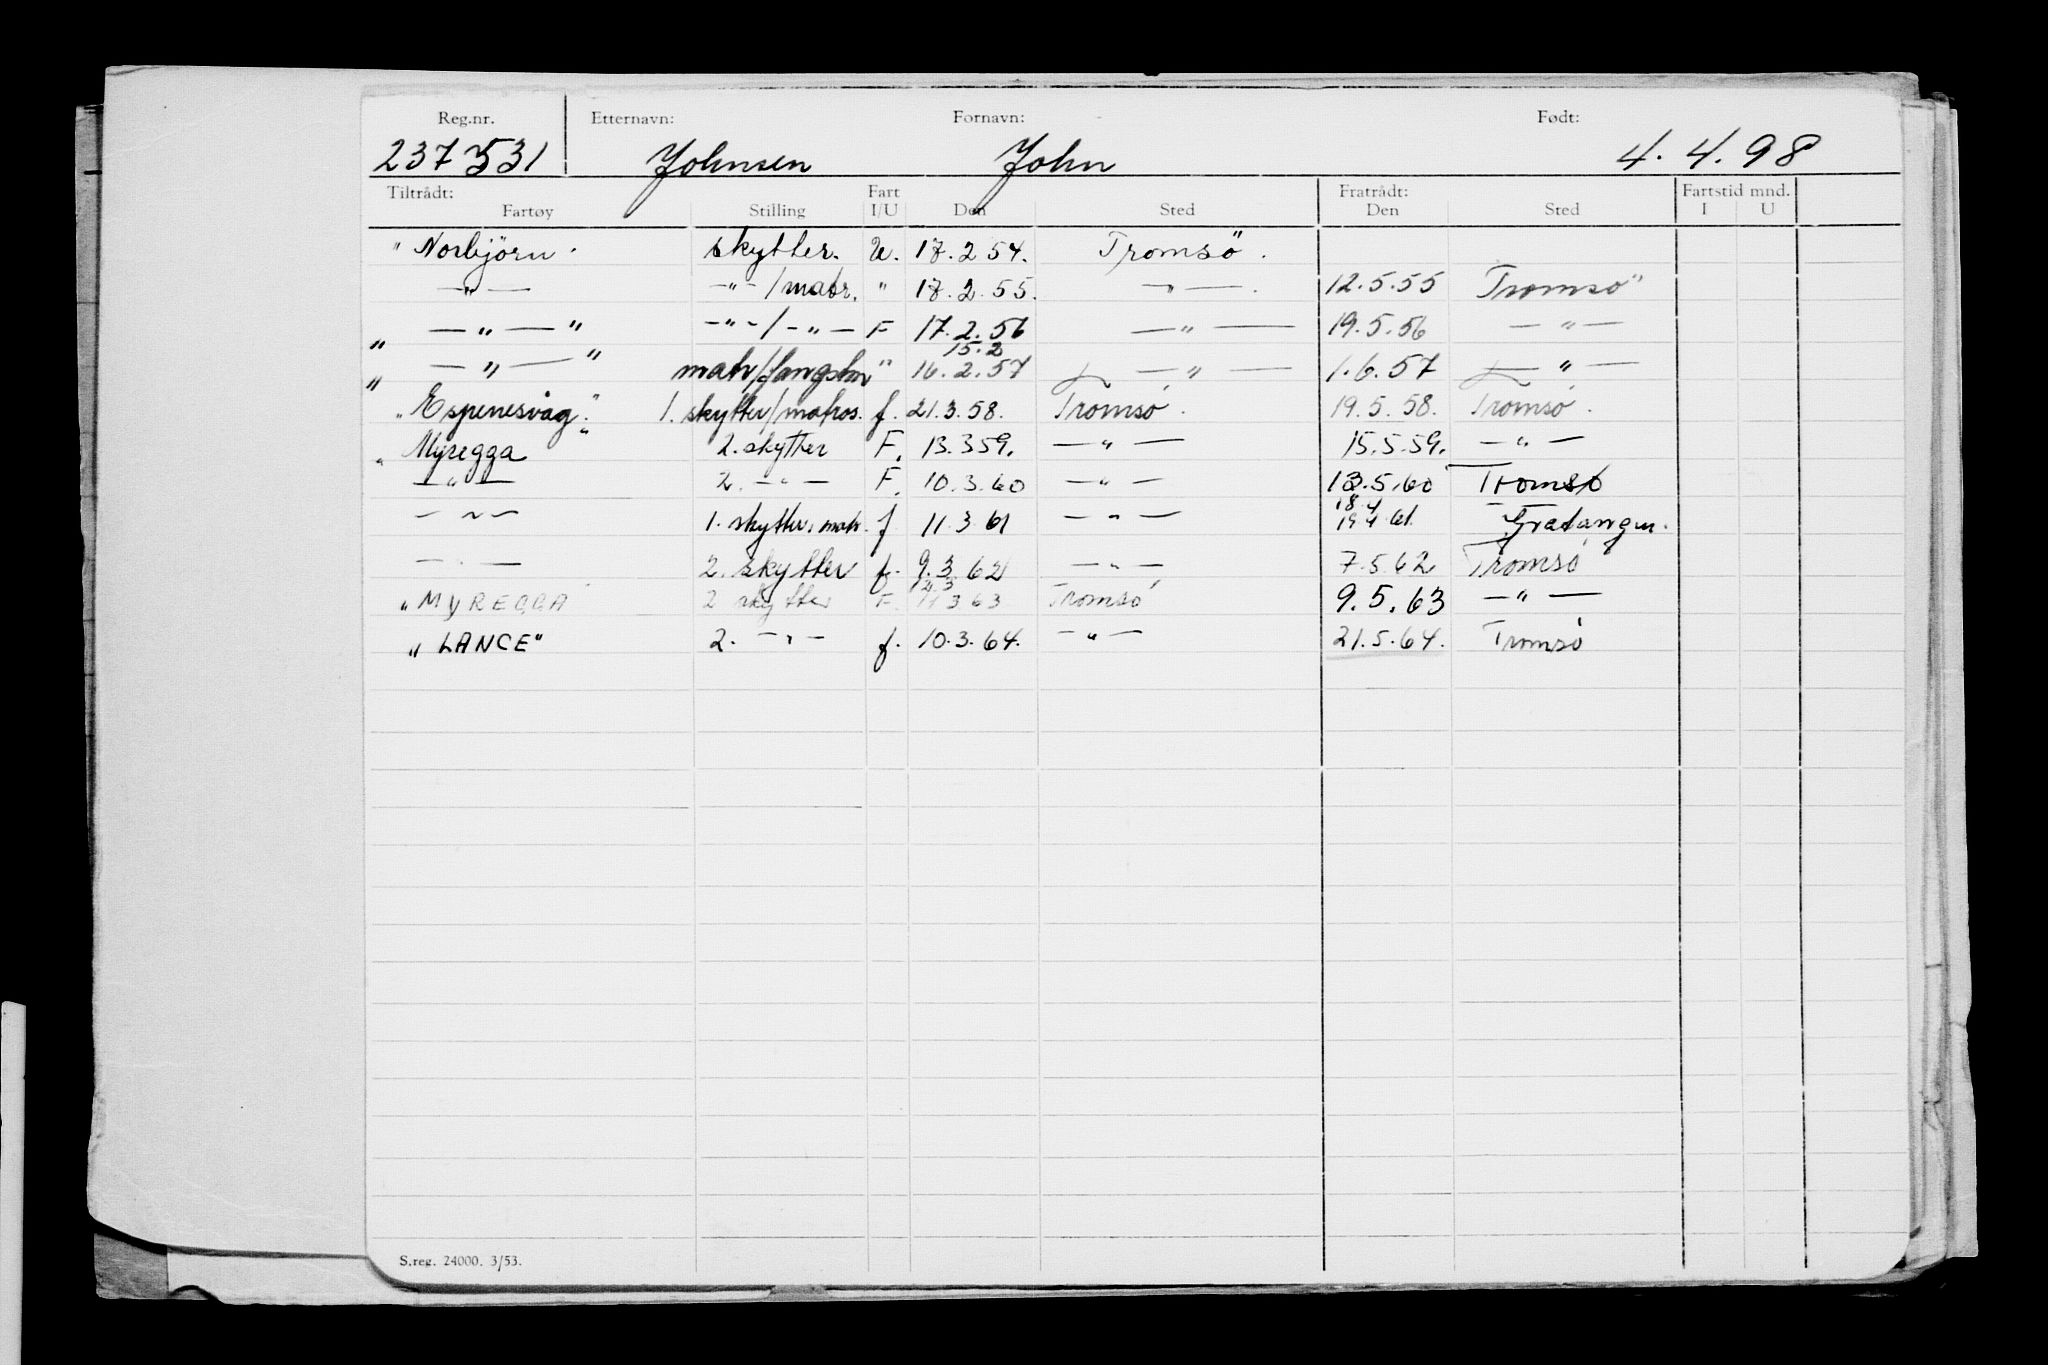 Reg.nr. Etternavn: Fornavn: Født:
237531 Johnsen John 4.4.98
Tiltrådt: Fart Fratrådt: Fartstid mnd.
Fartøy Stilling I/U Den Sted Den Sted I U
" Norbjörn. skytter. U. 17.2 54. Tromsö.
— " — - " - / matr. " 17.2.55. — " —. 12.5.55 Tromsö"
" — " — " - " - / - " - F 17.2.56 — " — 19.5.56 — " —
15.2
" — " — " matr/fangstm " 16.2.57 — " — 1.6.57 — " —
"Espenesvåg". 1. skytter/matros. f. 21.3.58. Tromsø. 19.5.58. Tromsø.
" Myregga " 2. skytter F. 13.3 59. — " — 15.5.59. — " —
— " — 2. — " — F. 10.3.60 — " — 13.5.60 Tromsø
18.4
— " — 1. skytter, matr. f 11.3 61 — " — 19 4 61. Gratangen.
— " — 2. skytter f. 9.3 62 — " — 7.5.62 Tromsø
" MYREGGA 2 skytter F. 3 63 Tromsø 9.5.63 — " —
" LANCE" 2. — " — f. 10.3.64. — " — 21.5.64. Tromsø
S.reg. 24000. 3/53.